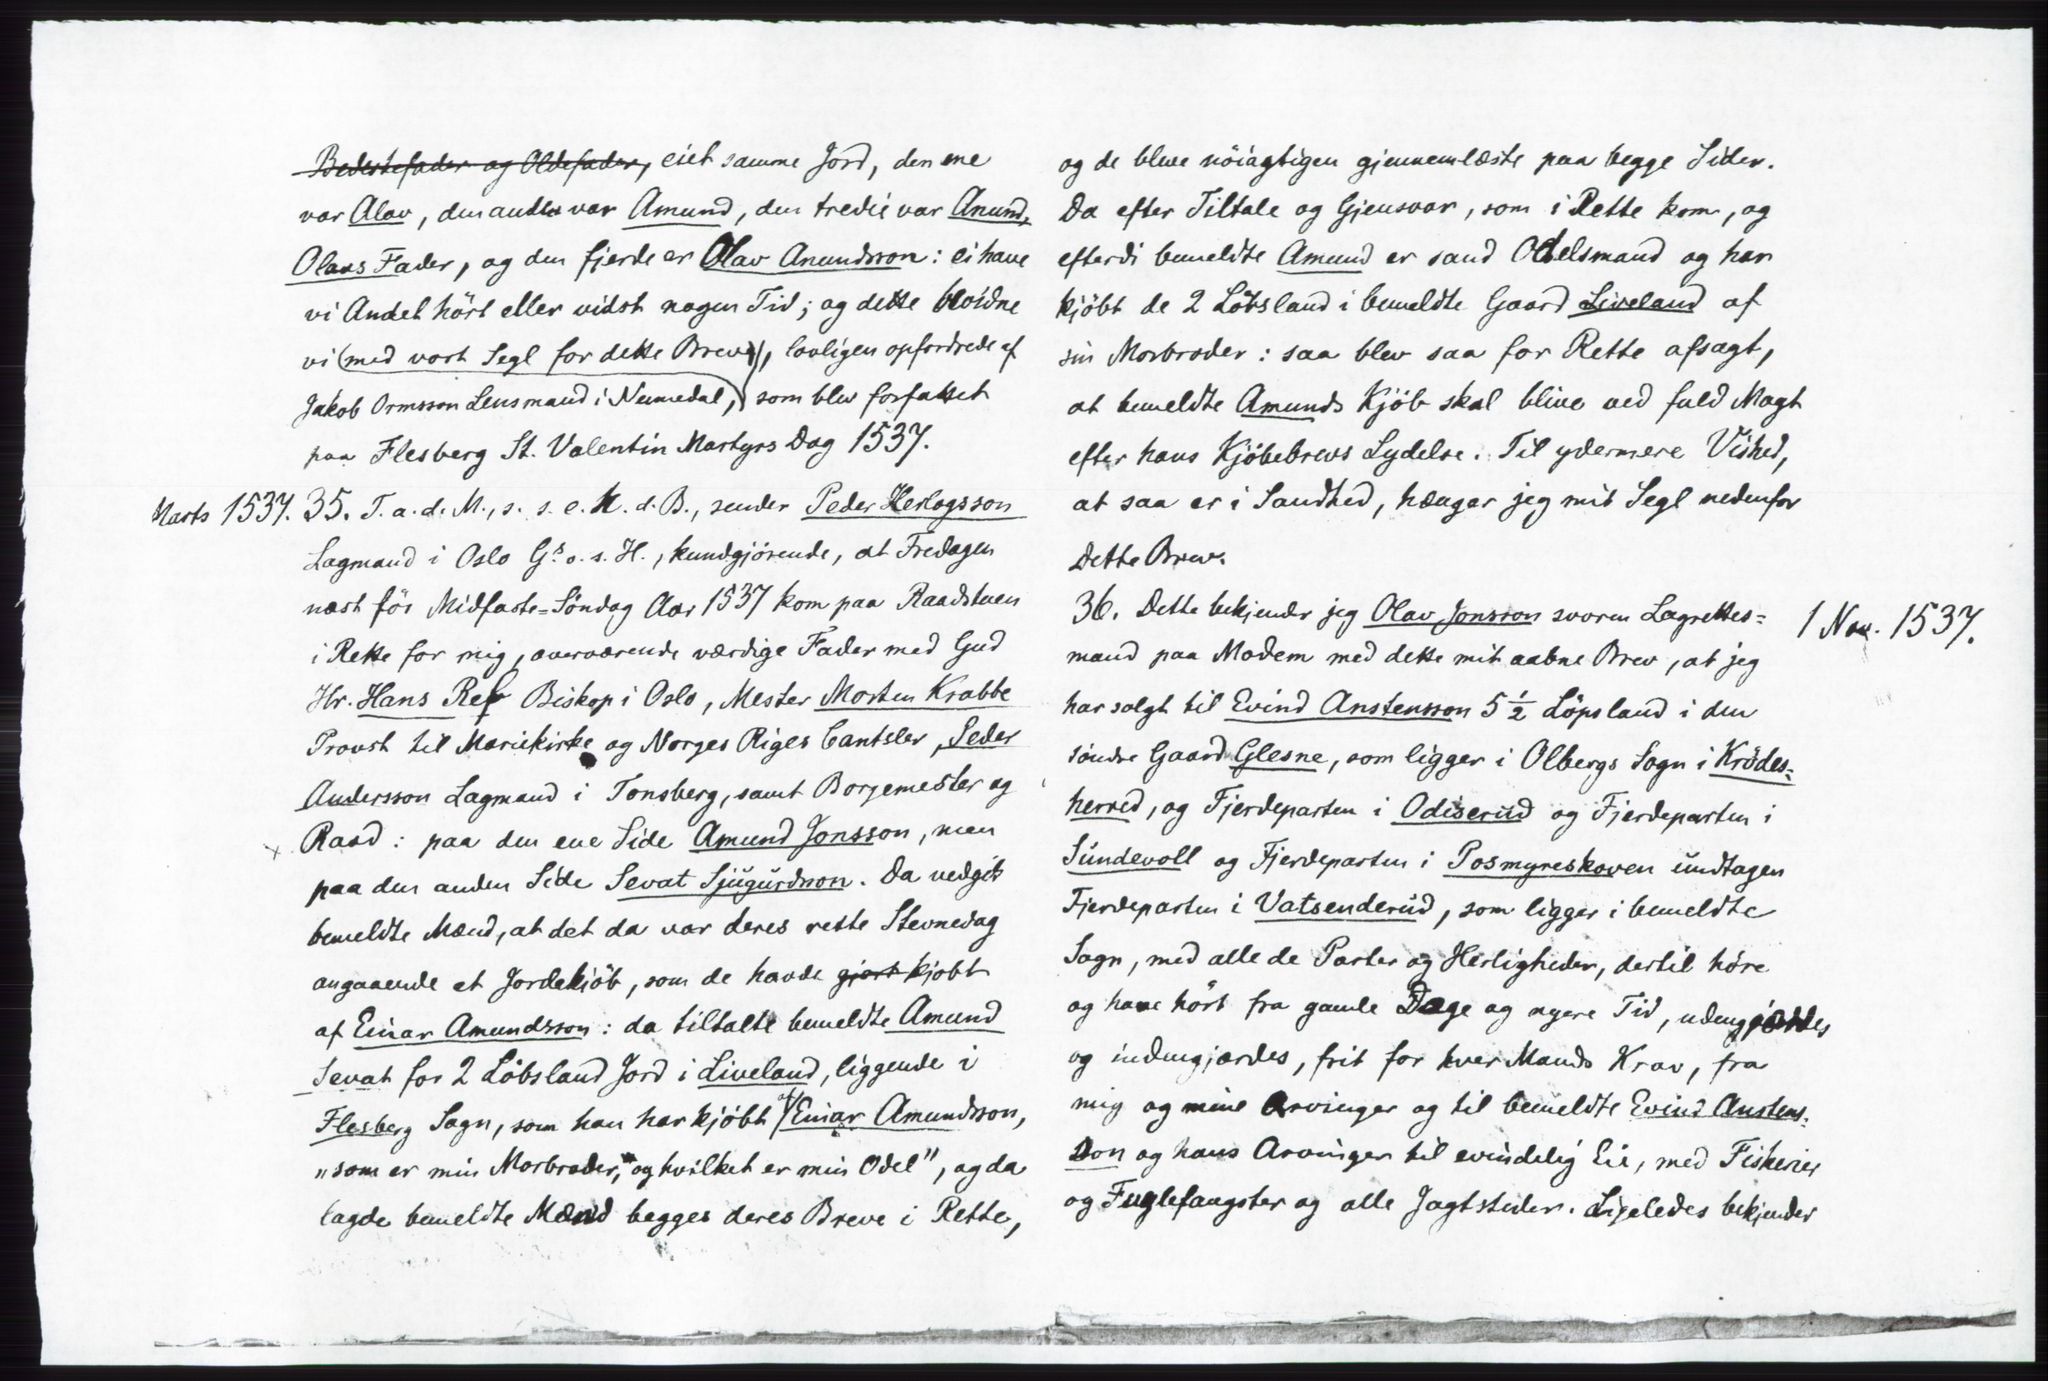 Bedestefader og Oldefader, eiet samme Jord, den ene
var Alav, den anden var Amund, den tredie var Anund,
Olavs Fader, og den fjerde er Olav Anundsson: ei have
vi Andet hört eller vidst nogen Tid; og dette
vi (med vort Segl for dette Brev), lovligen opfordrede af
Jakob Ormsson Lensmand i Numedal,) som blev forfattet
paa Flesberg St. Valentin Martyrs Dag 1537.
Marts 1537. 35. T. a. d. M., s. s. e. h. d. B., sender Peder Herlogsson
Lagmand i Oslo Gs. o. s. H., kundgjörende, at Fredagen
næst för Midfaste=Söndag Aar 1537 kom paa Raadstuen
i Rette for mig, overværende værdige Fader med Gud
Hr. Hans Ref Biskop i Oslo, Mester Morten Krabbe
Provst til Mariekirke og Norges Riges Cantsler, Peder
Andersson Lagmand i Tonsberg, samt Borgemester og
x Raad: paa den ene Side Amund Jonsson, men
paa den anden Side Sevat Sjugurdsson. Da vedgik
bemeldte Mænd, at det da var deres rette Stevnedag
angaaende et Jordekjöb, som de havde gjort kjobt
af Einar Amundsson: da tiltalte bemeldte Amund
Sevat for 2 Löbsland Jord i Liveland, liggende i
Flesberg Sogn, som han har kjöbt af Einar Amundsson,
"som er min Morbroder, og hvilket er min Odel", og da
lagde bemeldte Mænd begges deres Breve i Rette,
og de bleve nöiagtigen gjennemlæste paa begge Sider.
Da efter Tiltale og Gjensvar, som i Rette kom, og
efterdi bemeldte Amund er sand Odelsmand og har
kjöbt de 2 Löbsland i bemeldte Gaard Liveland af
sin Morbroder: saa blev saa for Rette afsagt,
at bemeldte Amunds Kjöb skal blive ved fuld Magt
efter hans Kjöbebrevs Lydelse. Til ydermere Vished,
at saa er i Sandhed, hænger jeg mit Segl nedenfor
dette Brev.
36. Dette bekjender jeg Olav Jonsson svoren Lagrettes= 1 Nov. 1537.
mand paa Modem med dette mit aabne Brev, at jeg
har solgt til Evind Anstensson 5 1/2 Löpsland i den
söndre Gaard Glesne, som ligger i Olbergs Sogn i Krödes=
herred, og Fjerdeparten i Odiserud og Fjerdeparten i
Sundevoll og Fjerdeparten i Posmyreskoven undtagen
Fjerdeparten i Vatsenderud, som ligger i bemeldte
Sogn, med alle de Parter og Herligheder, dertil höre
og have hört fra gamle Dage og nyere Tid, udengjærdes
og indengjærdes, frit for hver Mands Krav, fra
mig og mine Arvinger og til bemeldte Evind Anstens=
son og hans Arvinger til evindelig Eie, med Fiskerier
og Fuglefangster og alle Jagtsteder. Ligeledes bekjender